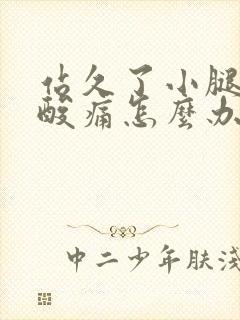 站久了小腿
酸痛怎麼办
中二少年肤浅